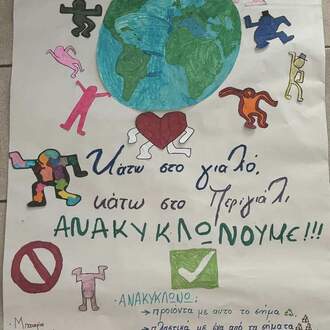 Κάτω στο γιαλό,
κάτω στο Περιγιάλι
ΑΝΑΚΥΚΛΩΝΟΥΜΕ!!!
ΑΝΑΚΥΚΛΩΝΩ:
→ προϊόντα με αυτό το σήμα
→ πλαστικά με ένα από τα σήματα